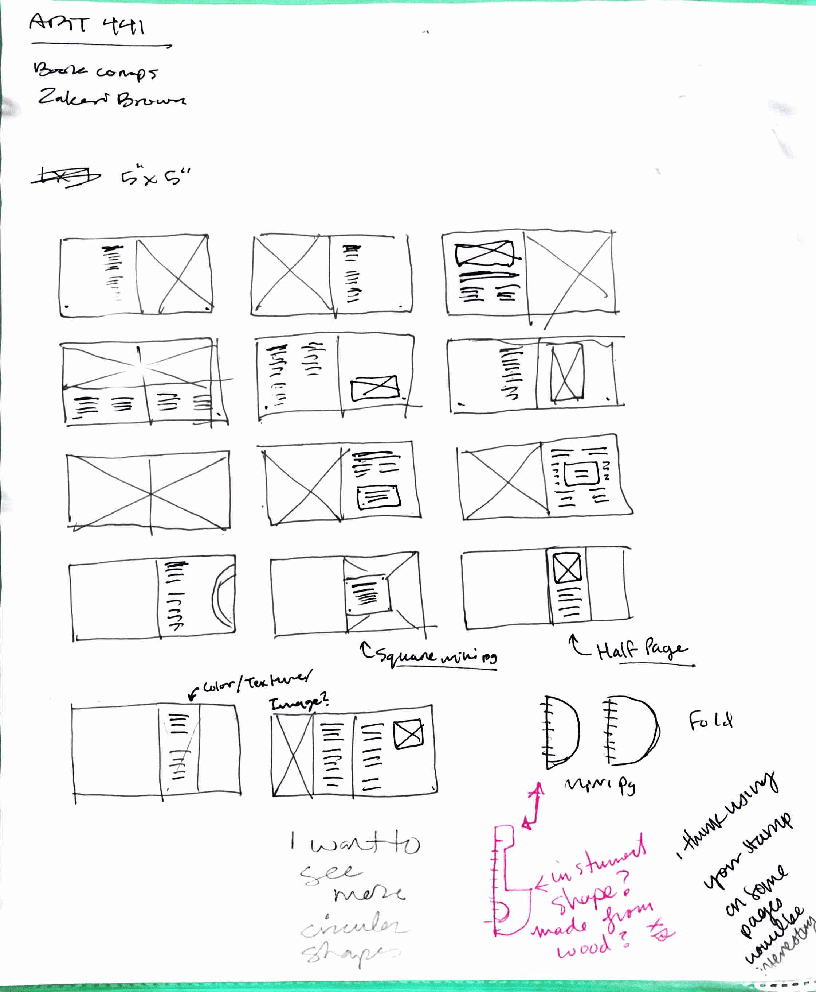 ART 441
Book comps
Zakari Brown
5" x 5"
Square mini pg
Half Page
Color/Texture/
Image?
Fold
mini pg
I want to
see
more
circular
shapes
instrument
shape?
made from
wood?
I think using
your stamp
on some
pages
would be
interesting